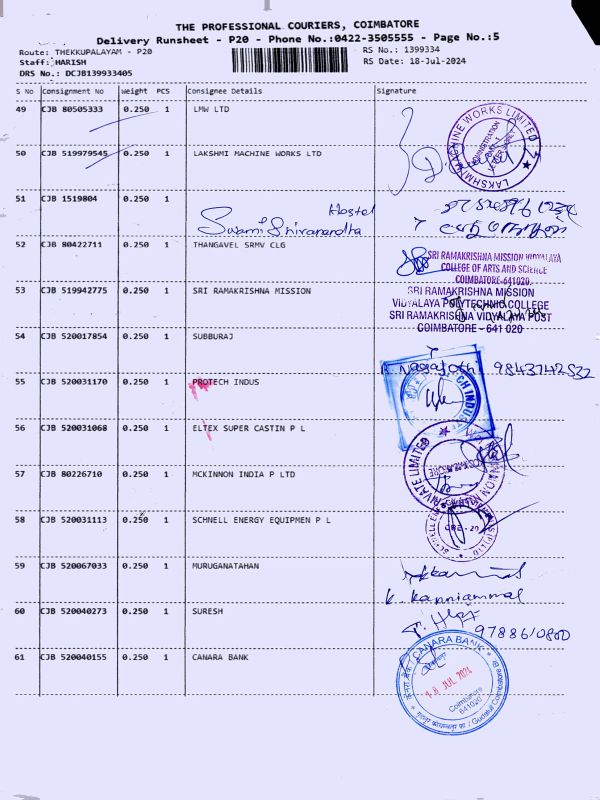 THE PROFESSIONAL COURIERS, COIMBATORE
Delivery Runsheet - P20 - Phone No.:0422-3505555 - Page No.:5
Route: THEKKUPALAYAM - P20
RS No.: 1399334
Staff: HARISH
RS Date: 18-Jul-2024
DRS No.: DCJB139933405
S No Consignment No Weight PCS Consignee Details Signature
49 CJB 80505333 0.250 1 LMW LTD
LAKSHMI MACHINE WORKS LIMITED
50 CJB 519979545 0.250 1 LAKSHMI MACHINE WORKS LTD
51 CJB 1519804 0.250 1
Hostel
Swami Shivanandha
52 CJB 80422711 0.250 1 THANGAVEL SRMV CLG
SRI RAMAKRISHNA MISSION VIDYALAYA
COLLEGE OF ARTS AND SCIENCE
COIMBATORE-641020
53 CJB 519942775 0.250 1 SRI RAMAKRISHNA MISSION
SRI RAMAKRISHNA MISSION
VIDYALAYA POLYTECHNIC COLLEGE
SRI RAMAKRISHNA VIDYALAYA POST
COIMBATORE - 641 020
54 CJB 520017854 0.250 1 SUBBURAJ
9843742532
55 CJB 520031170 0.250 1 PROTECH INDUS
56 CJB 520031068 0.250 1 ELTEX SUPER CASTIN P L
57 CJB 80226710 0.250 1 MCKINNON INDIA P LTD
PRIVATE LIMITED
58 CJB 520031113 0.250 1 SCHNELL ENERGY EQUIPMEN P L
59 CJB 520067033 0.250 1 MURUGANATAHAN
K. Kanniammal
60 CJB 520040273 0.250 1 SURESH
9788610800
61 CJB 520040155 0.250 1 CANARA BANK
CANARA BANK
18 JUL 2024
Coimbatore
641020